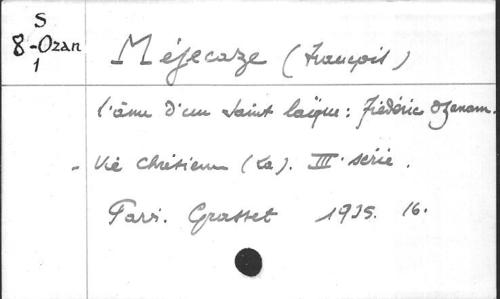 S
8-Ozan
1
Méjecaze (François)
l'âme d'un saint laïque : Frédéric Ozanam.
- Vie Chrétienne (La). III° série.
Paris. Grasset 1935. 16.